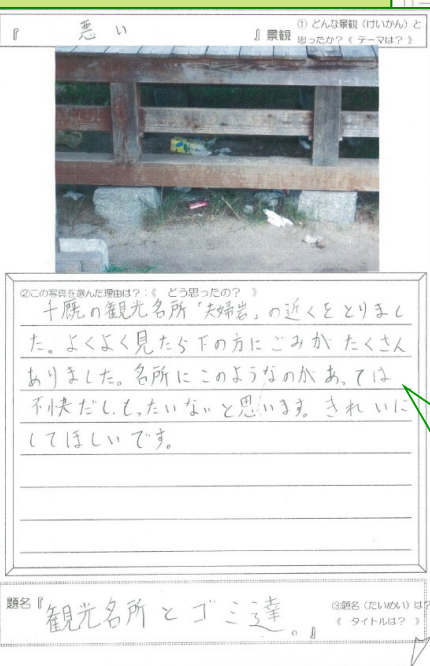 『 悪い 』景観
(1) どんな景観（けいかん）と
思ったか？《 テーマは？ 》
②この写真を選んだ理由は？：《 どう思ったの？ 》
千厩の観光名所「夫婦岩」の近くをとりまし
た。よくよく見たら下の方にごみが たくさん
ありました。名所にこのようなのがあっては
不快だし、もったいないと思います。きれいに
してほしいです。
題名『観光名所とゴミ達。』
③題名（だいめい）は？
《 タイトルは？ 》